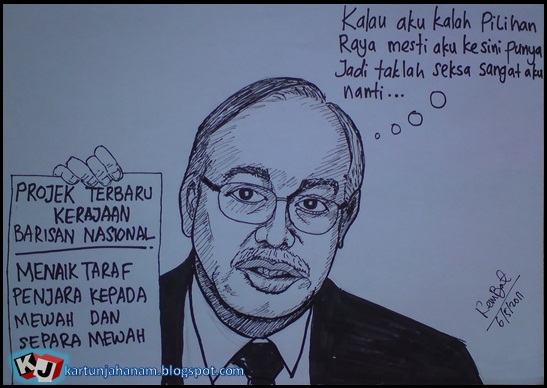 Kalau aku kalah Pilihan
Raya mesti aku kesini punya
Jadi taklah seksa sangat aku
nanti...
PROJEK TERBARU
KERAJAAN
BARISAN NASIONAL
MENAIK TARAF
PENJARA KEPADA
MEWAH DAN
SEPARA MEWAH
Rembat
6/5/2011
KJ
kartunjahanam.blogspot.com